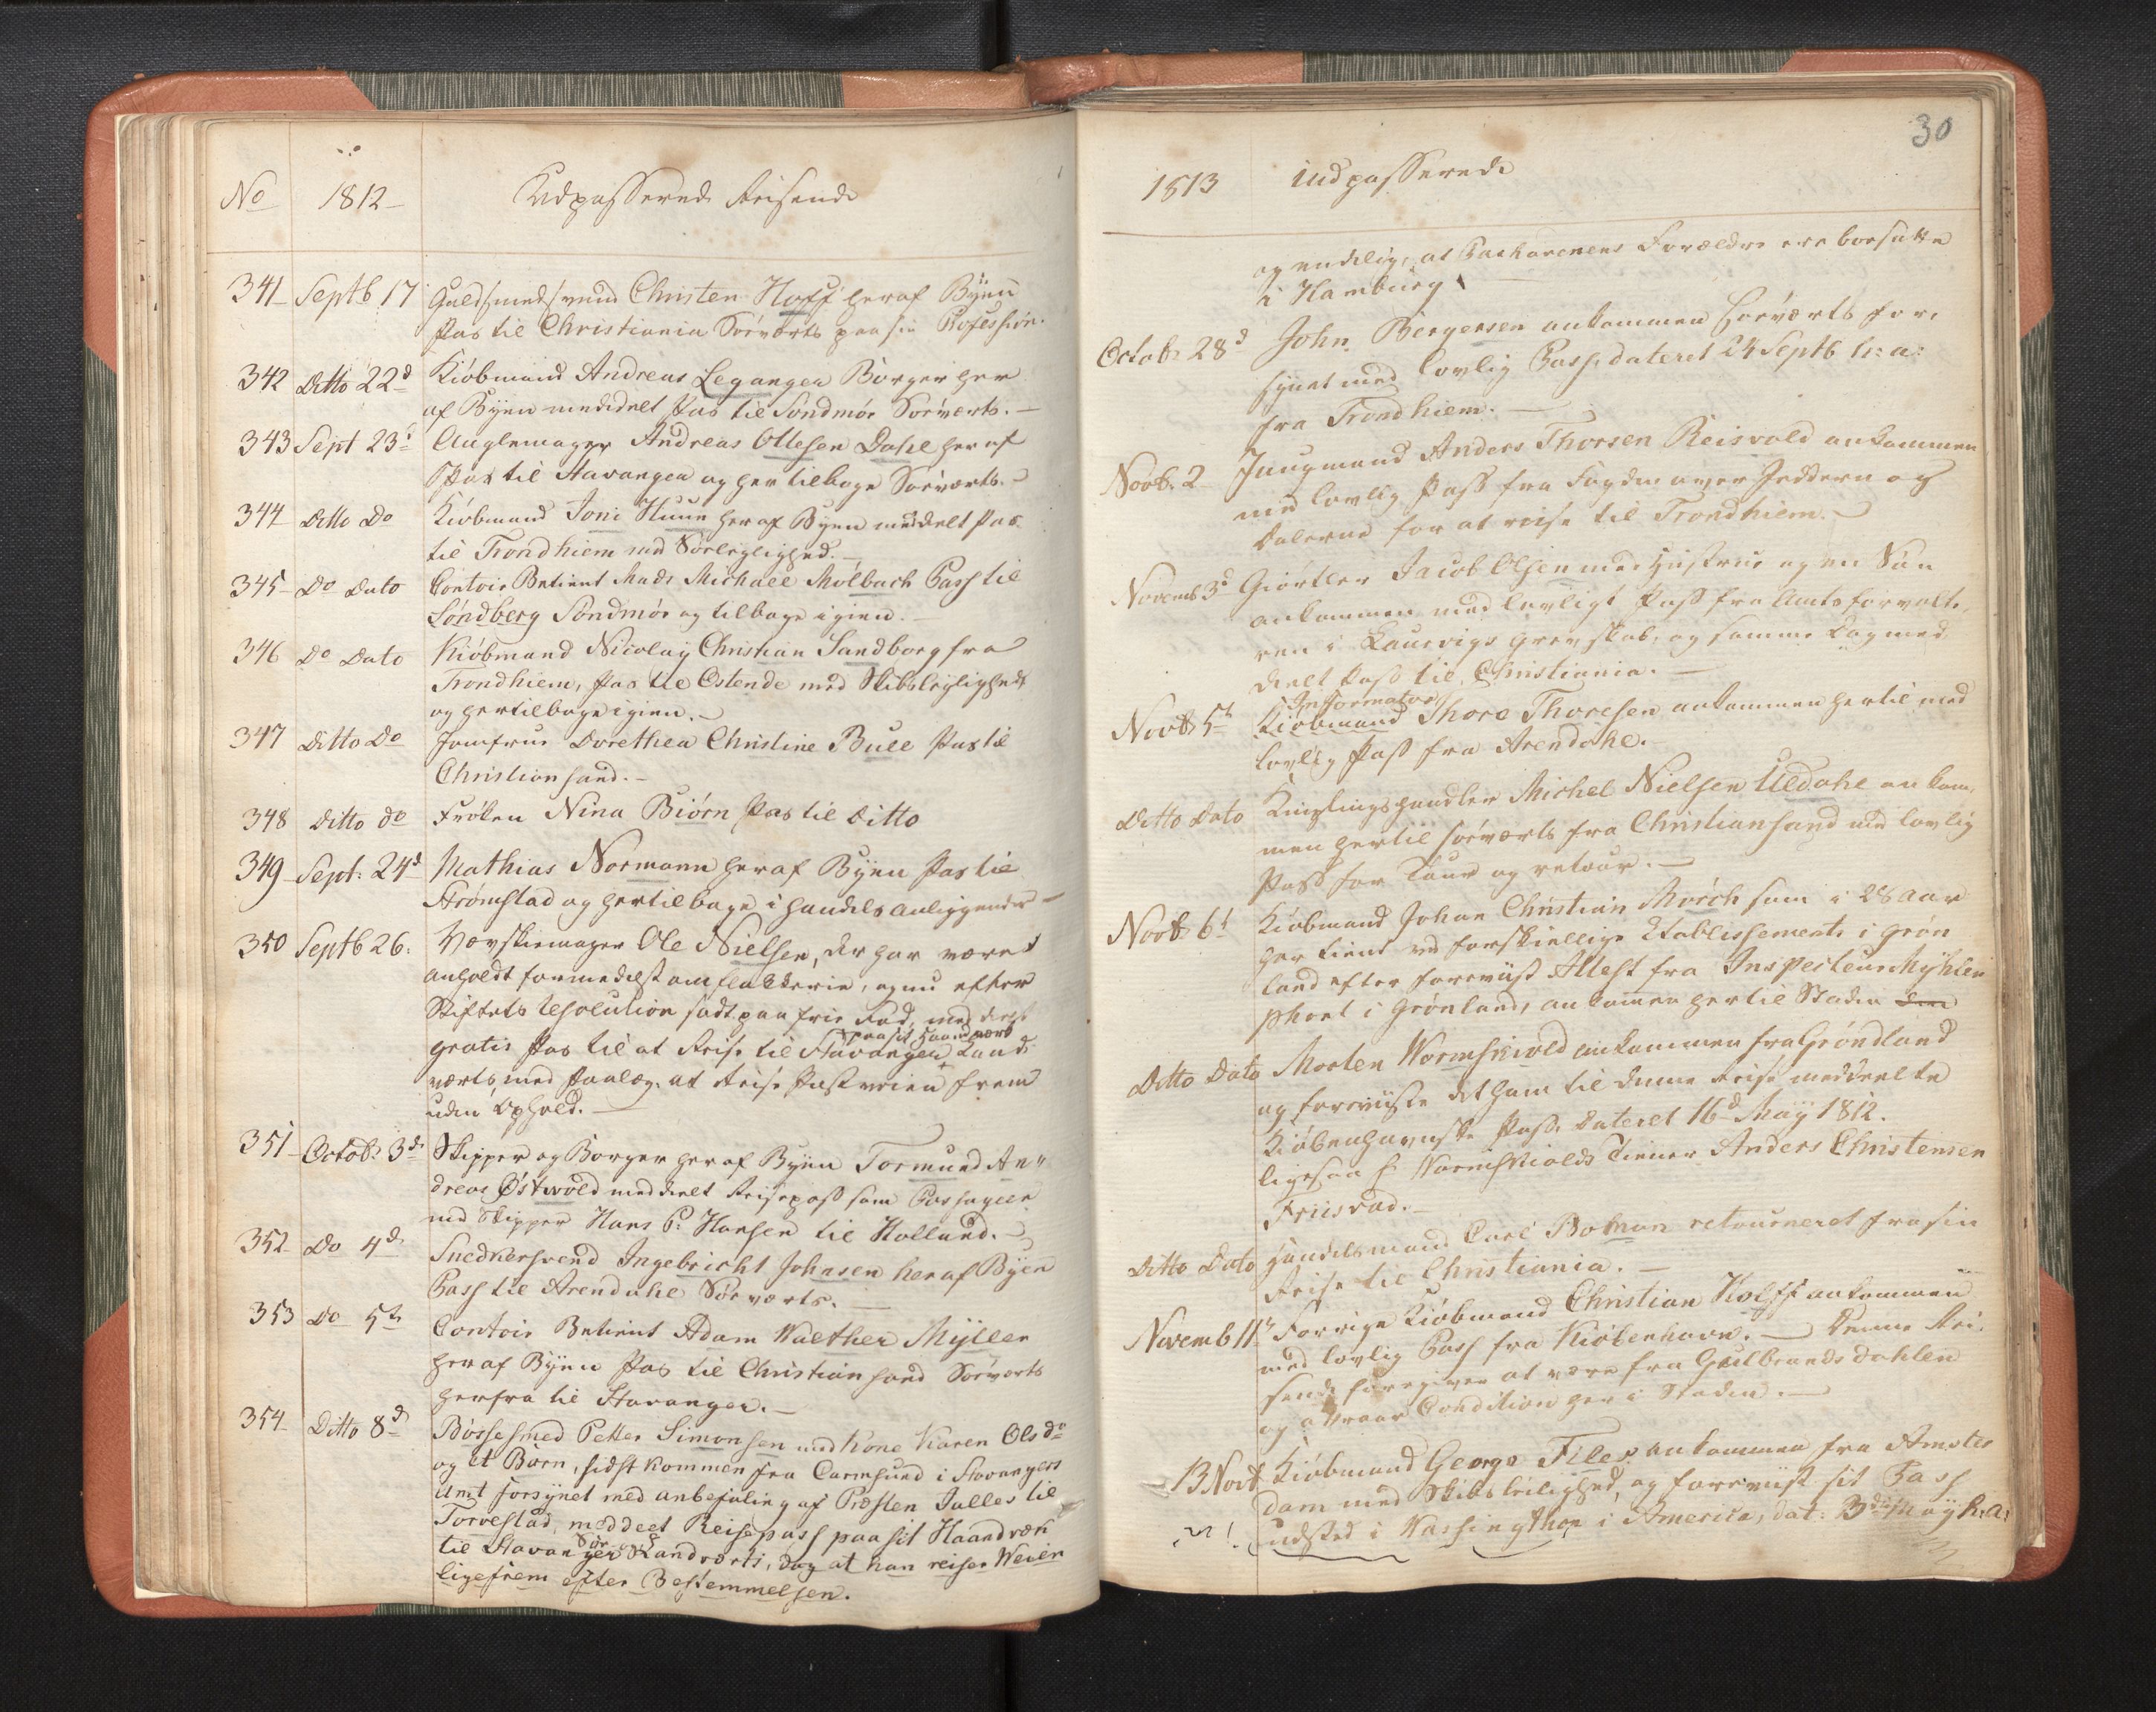 No 1812 Udpasserede Reisende
341 Septb 17 Guldsmedsvend Christen Hoff heraf Byen
Pas til Christiania Söeværts paa sin Profession.
342 Ditto 22d Kiöbmand Andreas Leganger Borger her
af Byen meddelt Pas til Söndmör Söeværts.
343 Sept 23d Andreas Ottesen Dahl heraf
Pas til Stavanger og her tilbage Söeværts.
344 Ditto Do Kiöbmand Joni Huun heraf Byen meddelt Pas
til Trondhiem med Söeleylighed.
345 Do Dato Contoir Betient Mads Michael Molbach Pass til
Söndberg Söndmör og tilbage igien.
346 Do Dato Kiöbmand Nicolay Christian Sandborg fra
Trondhiem, Pas til Ostende med Skibsleylighed
og hertilbage igien.
347 Ditto Do Jomfrue Dorethea Christine Bull Pas til
Christiansand.
348 Ditto do Fröken Nina Biörn Pas til Ditto
349 Sept: 24d Mathias Normann heraf Byen Pas til
Strömstad og hertilbage i Handels Anliggender
350 Septb 26. Ole Nielsen, der har været
anholdt formedelst omflakkerie, og nu efter
Stiftets Resolution sadt paa frie Fod, meddeelt
paa sit Haandværk
gratis Pas til at Reise til Stavanger Land-
værts, med Paalæg at Reise Postveien frem
uden Ophold.
351 Octob. 3d Skipper og Borger heraf Byen Tormund An-
dreas Östwold meddeelt Reisepass som Passageer
med Skipper Hans P. Hansen til Holland.
352 Do 4d Snedkersvend Ingebricht Johnsen her af Byen
Pass til Arendahl Söeværts.
353 Do 5te Contoir Betient Adam Walther Myller
heraf Byen Pas til Christiansand Söeværts
herfra til Stavanger.
354 Ditto 8d Bösse Smed Petter Simonsen med Kone Karen Olsdr
og et Barn, sidst kommen fra Carmsund i Stavangers
Amt forsynet med anbefaling af Præsten Salles til
Torvestad, meddeelt Reisepass paa sit Haandværk
til Stavanger Landværts, dog at han reiser Weien
ligefrem efter Bestemmelsen.
30
1813 Indpasserede
og endelig, at Forældre ere bosatte
i Hamburg
Octob. 28d John Bergersen ankommen Söeværts for-
synet med lovlig Pass, dateret 24 Septb h: a:
fra Trondhiem.
Novb. 2 Jungmand Anders Thorsen Reisvold ankommen
med lovlig Pass fra Fogden over Jedderen og
Dalerne for at reise til Trondhiem.
Novemb 3d Giörtler Jacob Olsen med Hustrue og en Sön
ankommen med lovligt Pass fra Amtsforvalte-
ren i Laurvigs Grevskab, og samme Dag med-
deelt Pass til Christiania.
Informator
Novb 5t Kiöbmand Thore Thoresen ankommen hertil med
lovlig Pass fra Arendahl.
Ditto Dato Michel Nielsen Uldahl ankom-
men hertil söeværts fra Christiansand med lovlig
Pass for Tour og retour.
Novb 6t Kiöbmand Johan Christian Mörch som i 28 Aar
har tient ved forskiellige Etablissements i Grön-
land efter foreviist Attest fra Inspecteur Myhlen-
phort i Grönland, ankommen hertil Staden den
Ditto Dato Morten Wormskiold ankommen fra Gröndland
og foreviiste det ham til denne Reise meddeelte
Kiöbenhavnske Pass. Dateret 16d May 1812.
ligesaa H. Wormskiolds Tiener Anders Christensen
Friisvad.
Ditto Dato Handelsmand Carl Boman retourneret fra sin
Reise til Christiania.
Novemb 11t Forrige Kiöbmand Christian Holff ankommen
med lovlig Pass fra Kiöbenhavn. Denne Rei-
sende foregiver at være fra Gulbrandsdahlen
og Condition her i Staden.
13 Novb Kiöbmand George Files ankommen fra Amster
dam med Skibsleilighed, og foreviist sit Pass
udsted i Wassingthon i America, dat: 3die May h: a: